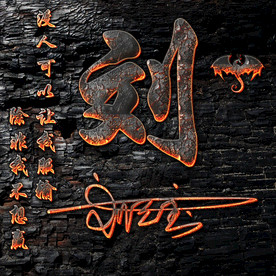 没人可以让我服输
除非我不想赢
刻